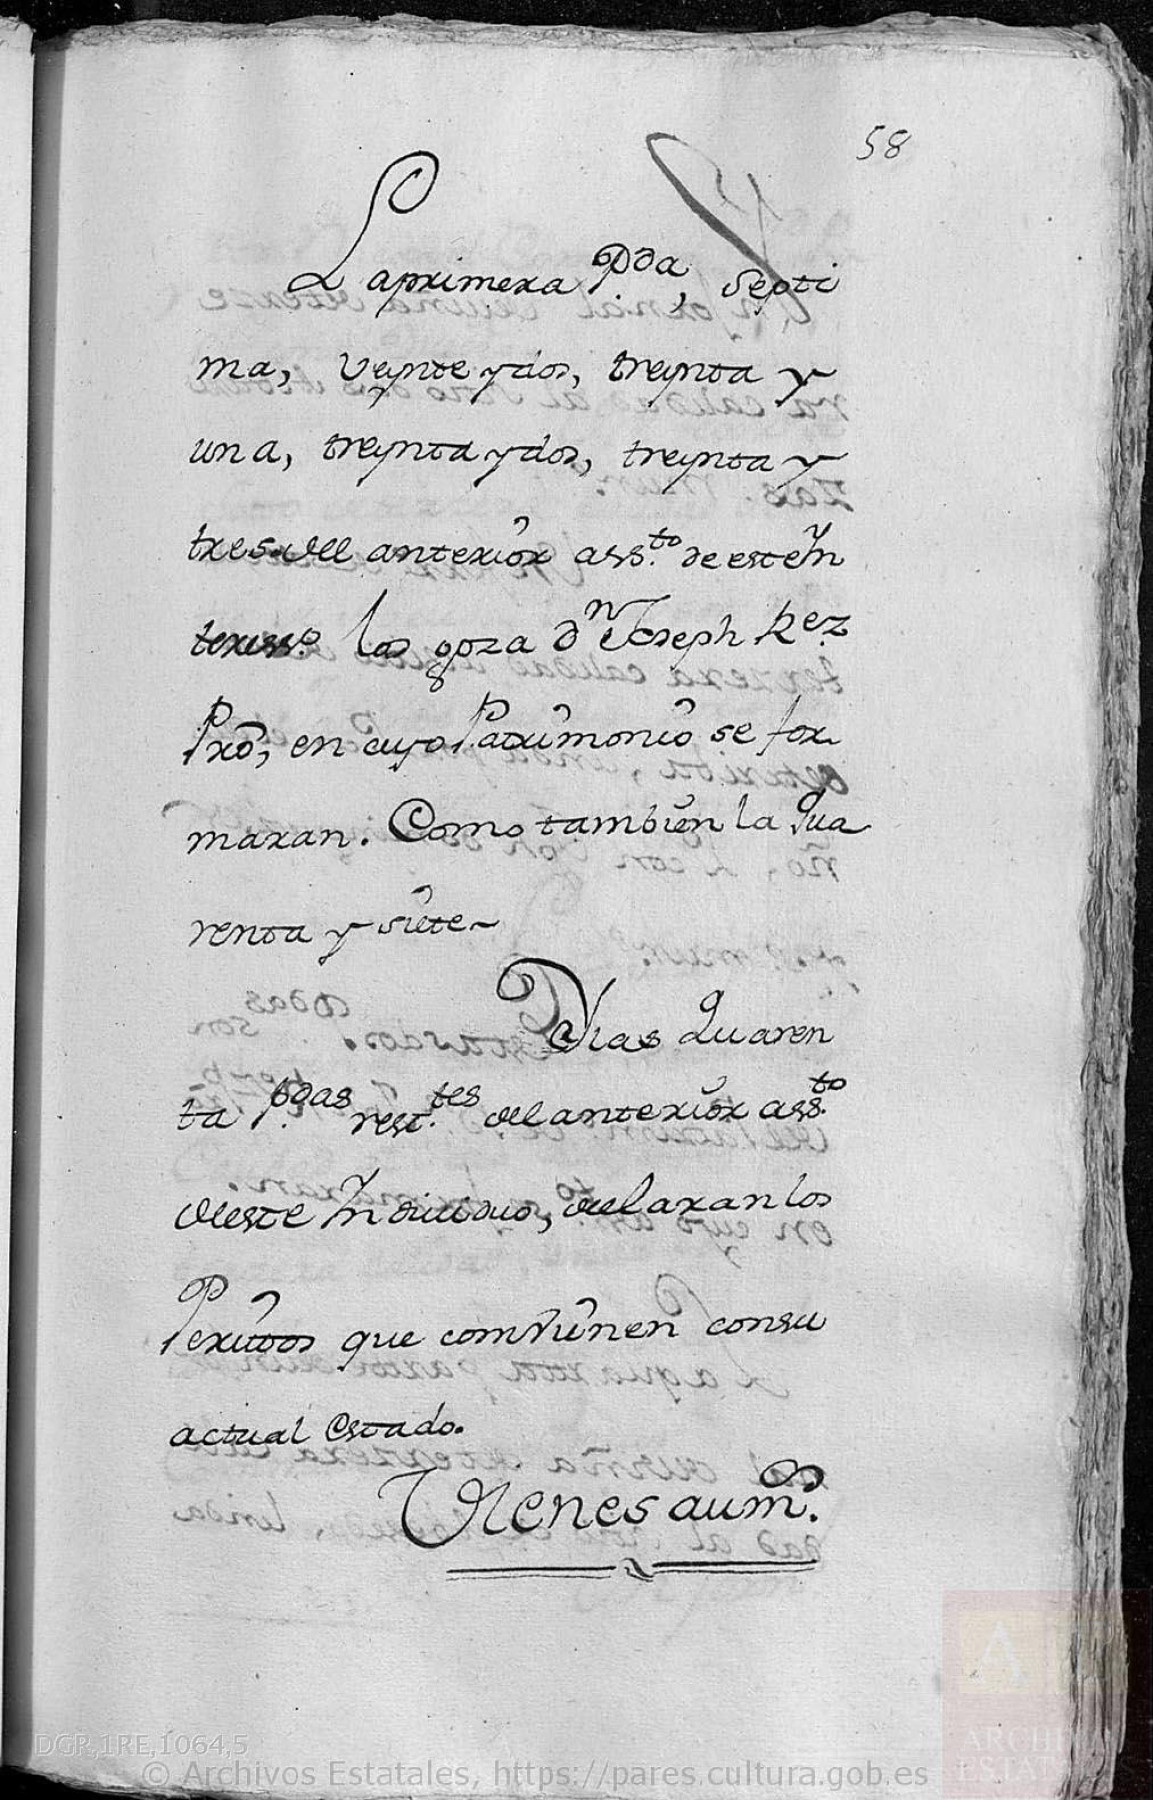 58
La primera P.da, septi
ma, veynte y dos, treynta y
una, treynta y dos, treynta y
tres del anterior ass.to de este Yn
teress.o las goza dn Joseph Rez.
Pro, en cuyo Patrimonio se for
maran. Como tambien la Qua
renta y siete~
Dlas Quaren
ta P.das rest.tes del anterior ass.to
deste Yndiuiduo, delaran los
Peritos que combienen con su
actual estado.
Vienes aum.o
DGR,1RE,1064,5
© Archivos Estatales, https://pares.cultura.gob.es